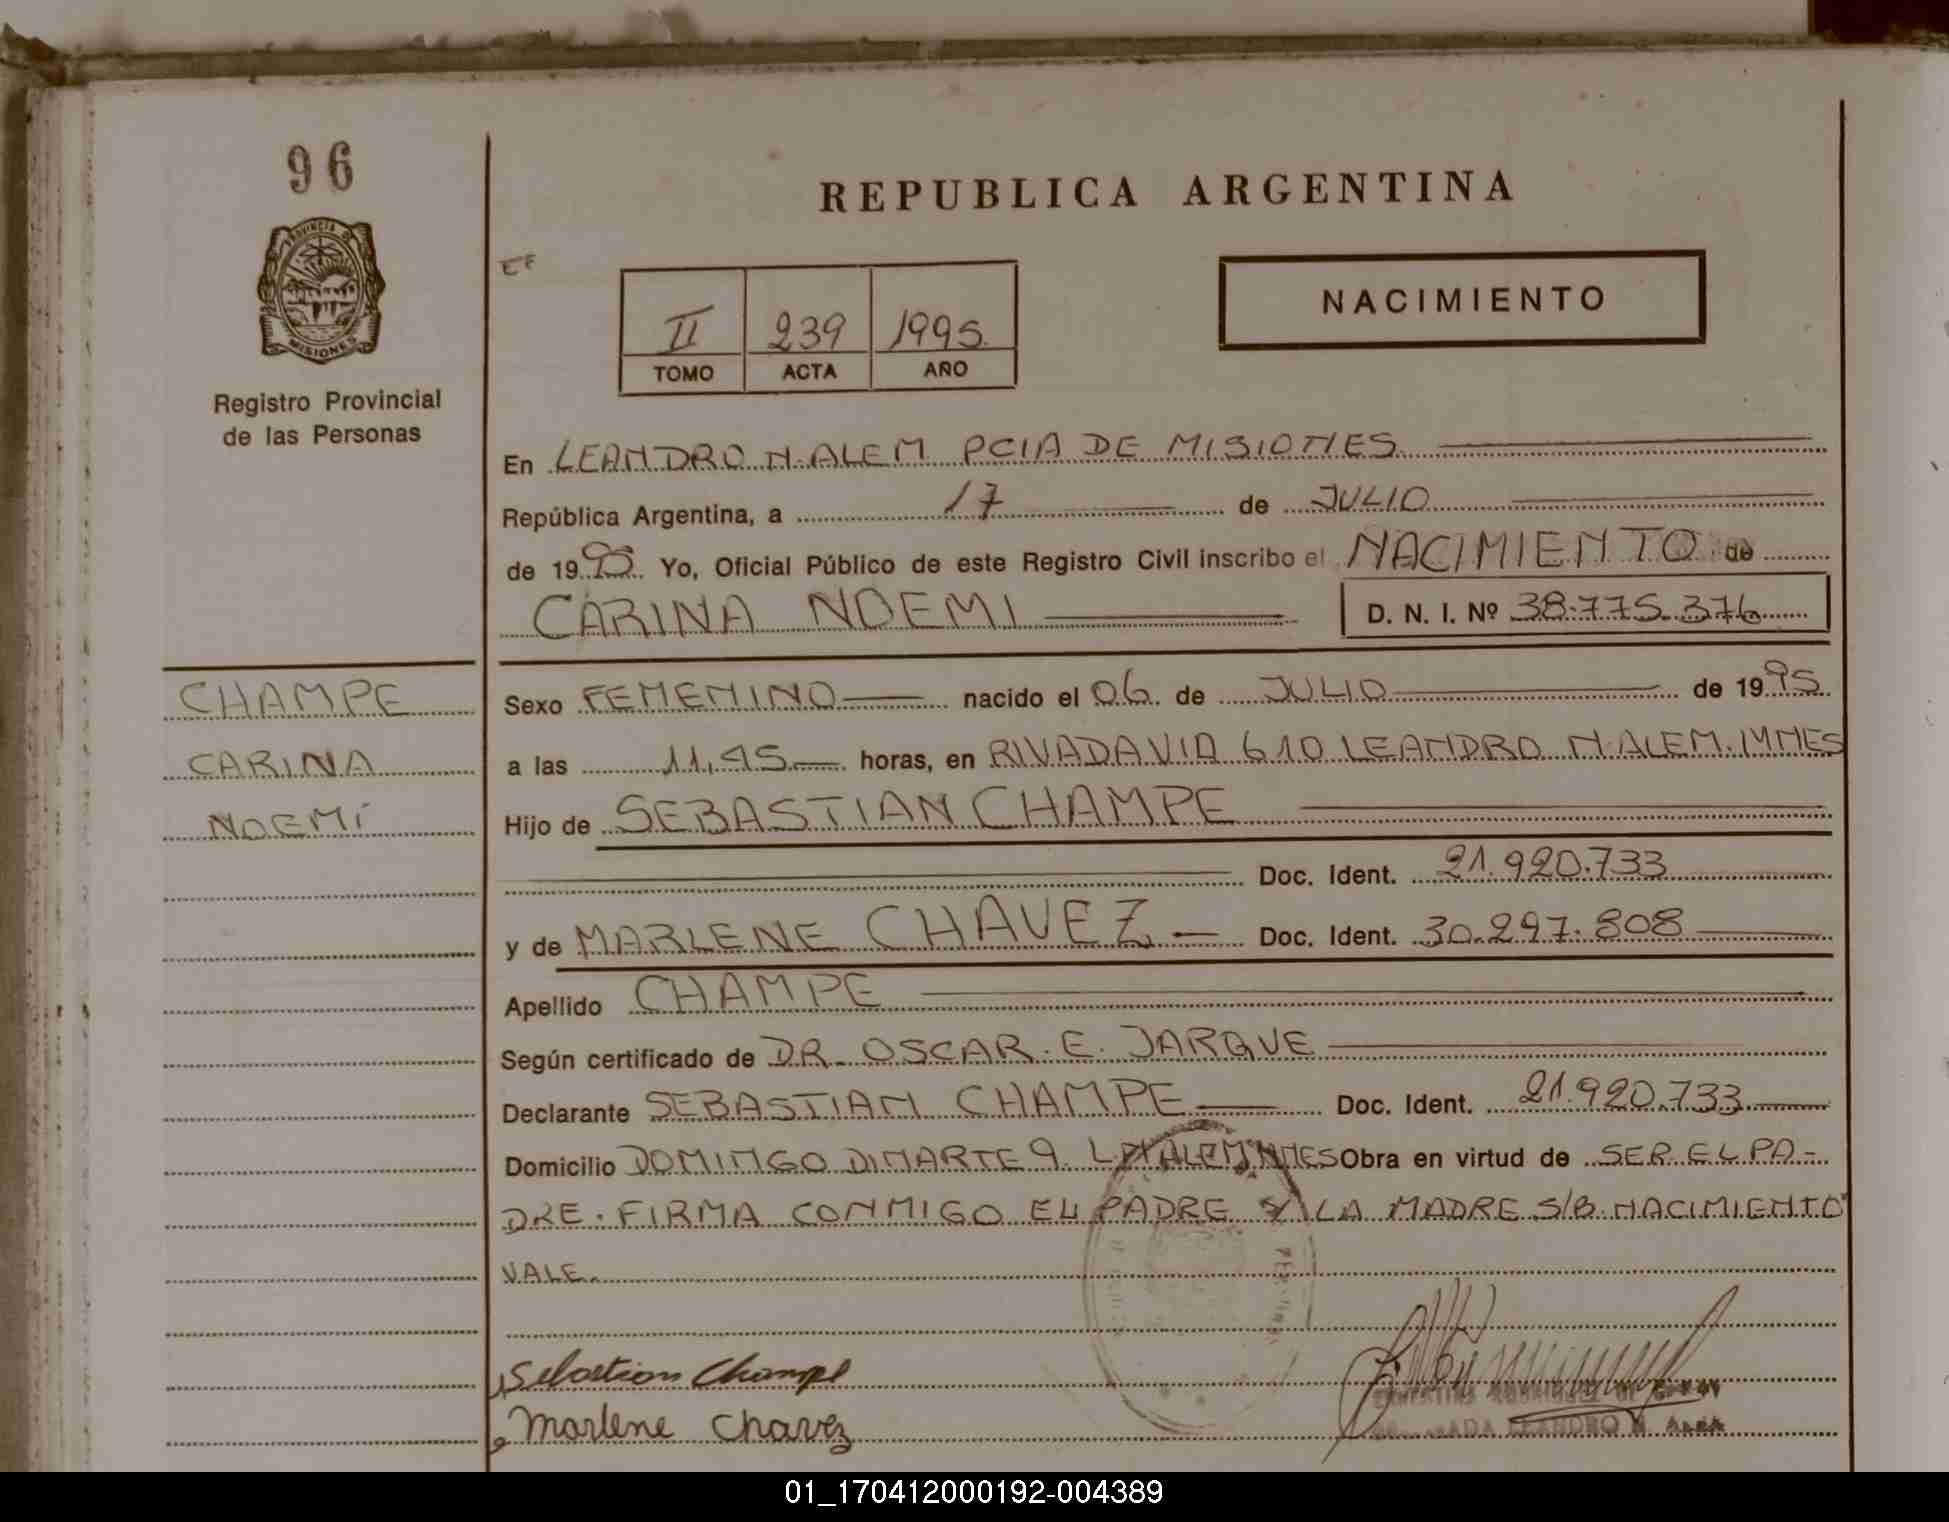 96
PROVINCIA DE
MISIONES
Registro Provincial
de las Personas
REPUBLICA ARGENTINA
EF
II 239 1995
TOMO ACTA AÑO
NACIMIENTO
En LEANDRO N. ALEM PCIA DE MISIONES
República Argentina, a 17 de JULIO
de 1995 Yo, Oficial Público de este Registro Civil inscribo el NACIMIENTO de
CARINA NOEMI D. N. I. Nº 38.775.376
CHAMPE
CARINA
NOEMÍ
Sexo FEMENINO nacido el 06 de JULIO de 1995
a las 11,45 horas, en RIVADAVIA 610 LEANDRO N. ALEM. MNES
Hijo de SEBASTIAN CHAMPE
Doc. Ident. 21.920.733
y de MARLENE CHAVEZ Doc. Ident. 30.297.808
Apellido CHAMPE
Según certificado de DR. OSCAR. E. JARQUE
Declarante SEBASTIAN CHAMPE Doc. Ident. 21.920.733
Domicilio DOMINGO DIMARTE 9 L. N. ALEM MNES Obra en virtud de SER EL PA-
DRE. FIRMA CONMIGO EL PADRE Y LA MADRE S/B. NACIMIENTO"
VALE.
Sebastian Champe
Marlene Chavez
LEANDRO N. ALEM
01_170412000192-004389